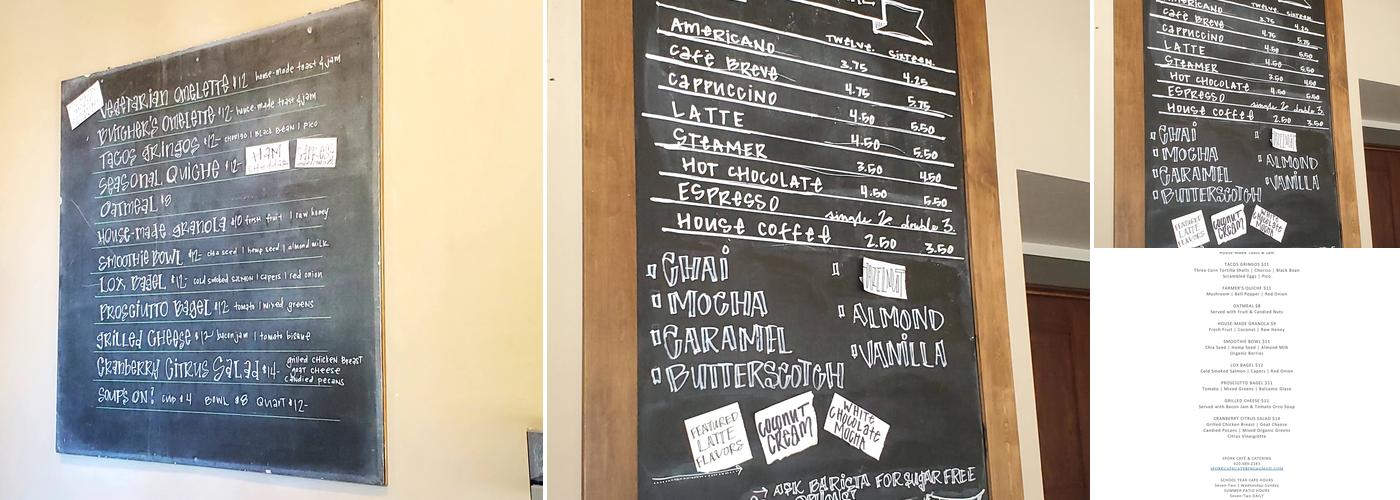 VEGETARIAN OMELETTE $12 house-made toast & jam
BUTCHER'S OMELETTE $12- house-made toast & jam
TACOS GRINGOS $12- chorizo | Black Bean | Pico
SEASONAL QUICHE $12- HAM CHEDDAR
OATMEAL $8
HOUSE-MADE GRANOLA $10 fresh fruit | raw honey
SMOOTHIE BOWL $12- chia seed | hemp seed | almond milk
LOX BAGEL $12- cold smoked salmon | capers | red onion
PROSCIUTTO BAGEL $12 tomato | mixed greens
GRILLED CHEESE $12 bacon jam | tomato bisque
CRANBERRY CITRUS SALAD $14- grilled chicken breast
goat cheese
candied pecans
SOUPS ON! CUP $4 BOWL $8 QUART $12-
TWELVE. SIXTEEN.
AMERICANO 3.75 4.25
CAFÈ BREVE 4.75 5.75
CAPPUCCINO 4.50 5.50
LATTE 4.50 5.50
STEAMER 3.50 4.50
HOT CHOCOLATE 4.50 5.50
ESPRESSO single 2. double 3.
HOUSE COFFEE 2.50 3.50
CHAI
HAZELNUT
MOCHA
ALMOND
CARAMEL
VANILLA
BUTTERSCOTCH
FEATURED
LATTE
FLAVORS
COCONUT
CREAM
WHITE
CHOCOLATE
MOCHA
ASK BARISTA FOR SUGAR FREE
TWELVE. SIXTEEN.
AMERICANO 3.75 4.25
CAFÈ BREVE 4.75 5.75
CAPPUCCINO 4.50 5.50
LATTE 4.50 5.50
STEAMER 3.50 4.50
HOT CHOCOLATE 4.50 5.50
ESPRESSO single 2. double 3.
HOUSE COFFEE 2.50 3.50
CHAI
HAZELNUT
MOCHA
ALMOND
CARAMEL
VANILLA
BUTTERSCOTCH
FEATURED
LATTE
FLAVORS
COCONUT
CREAM
WHITE
CHOCOLATE
MOCHA
House-Made Toast & Jam
TACOS GRINGOS $11
Three Corn Tortilla Shells | Chorizo | Black Bean
Scrambled Eggs | Pico
FARMER'S QUICHE $11
Mushroom | Bell Pepper | Red Onion
OATMEAL $8
Served with Fruit & Candied Nuts
HOUSE-MADE GRANOLA $9
Fresh Fruit | Coconut | Raw Honey
SMOOTHIE BOWL $11
Chia Seed | Hemp Seed | Almond Milk
Organic Berries
LOX BAGEL $12
Cold Smoked Salmon | Capers | Red Onion
PROSCIUTTO BAGEL $11
Tomato | Mixed Greens | Balsamic Glaze
GRILLED CHEESE $11
Served with Bacon Jam & Tomato Orzo Soup
CRANBERRY CITRUS SALAD $14
Grilled Chicken Breast | Goat Cheese
Candied Pecans | Mixed Organic Greens
Citrus Vinaigrette
SPORK CAFÉ & CATERING
SCHOOL YEAR CAFE HOURS
Seven-Two | Wednesday-Sunday
SUMMER PATIO HOURS
Seven-Two DAILY